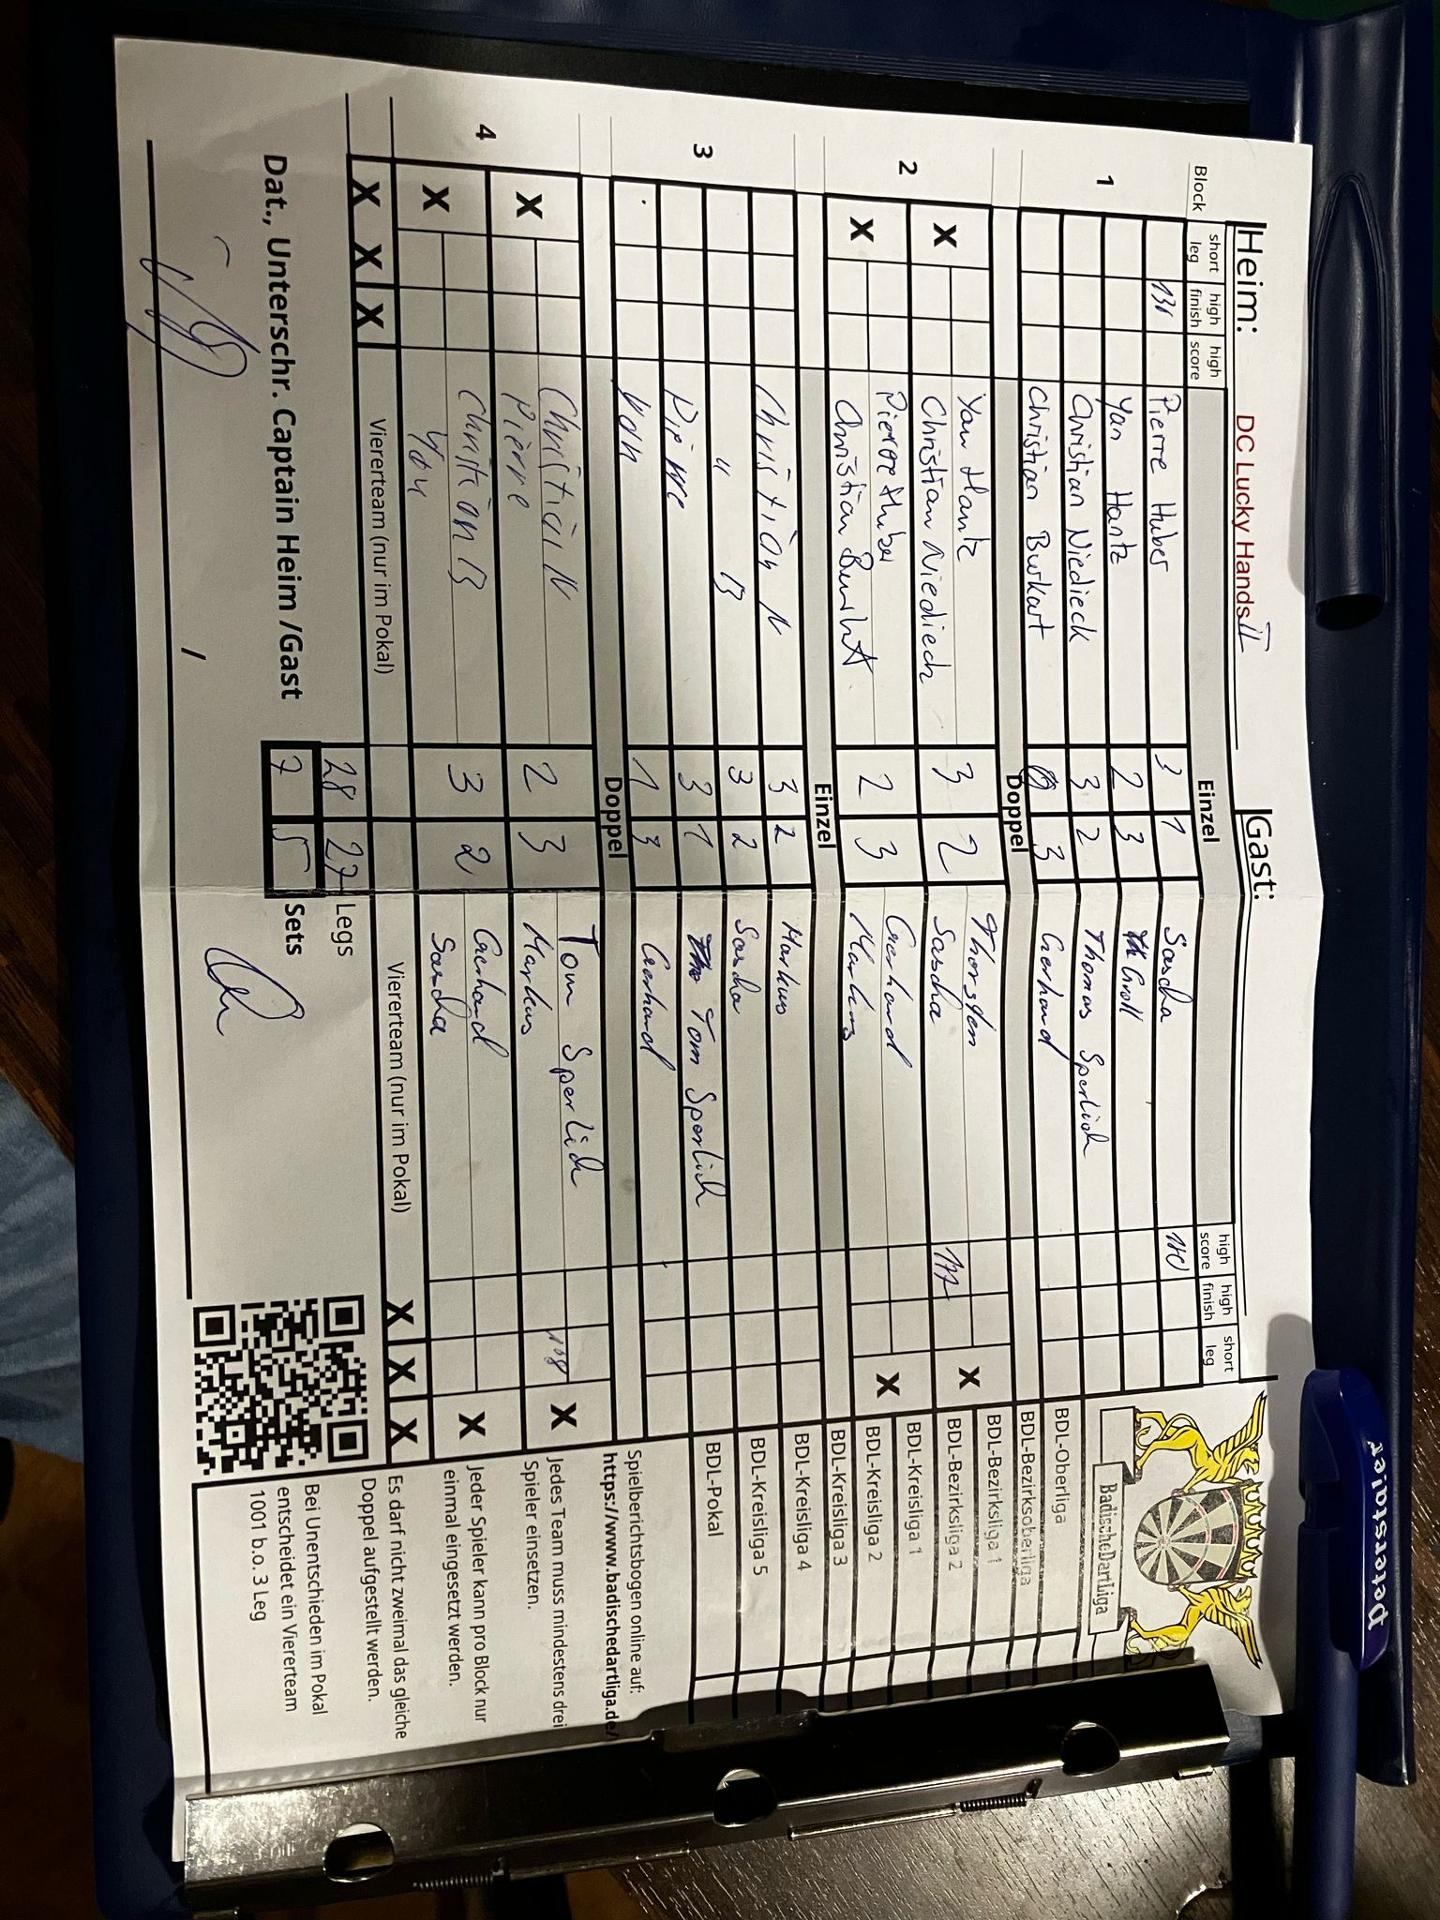 Heim: DC Lucky Hands II Gast:
Block short leg high finish high score Einzel high score high finish short leg
1
Pierre Huber 3 1 Sascha 180
Yan Hantz 2 3 Groll
Christian Niedieck 3 2 Thomas Sperlich
Christian Burkart 0 3 Gerhard
Doppel
2
X Yan Hantz 3 2 Thorsten X
Christian Niedieck Sascha 177
X Pierre Huber 2 3 Gerhard X
Markus
Einzel
3
Christian N 3 2 Markus
" B 3 2 Sascha
Pierre 3 1 Tom Sperlich
Yan 1 3 Gerhard
Doppel
4
X Christian N 2 3 Tom Sperlich 108 X
Pierre Markus
X Christian B 3 2 Gerhard X
Yan Sascha
X X X Viererteam (nur im Pokal) Viererteam (nur im Pokal) X X X
28 27 Legs
Dat., Unterschr. Captain Heim /Gast 7 5 Sets
/
BadischeDartLiga
BDL-Oberliga
BDL-Bezirksoberliga
BDL-Bezirksliga 1
BDL-Bezirksliga 2
BDL-Kreisliga 1
BDL-Kreisliga 2
BDL-Kreisliga 3
BDL-Kreisliga 4
BDL-Kreisliga 5
BDL-Pokal
Spielberichtsbogen online auf:
https://www.badischedartliga.de/
Jedes Team muss mindestens drei
Spieler einsetzen.
Jeder Spieler kann pro Block nur
einmal eingesetzt werden.
Es darf nicht zweimal das gleiche
Doppel aufgestellt werden.
Bei Unentschieden im Pokal
entscheidet ein Viererteam
1001 b.o. 3 Leg
Peterstaler